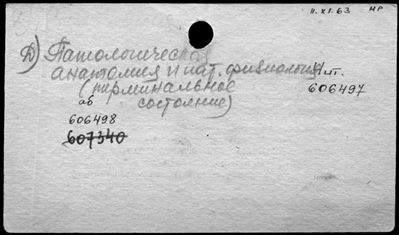 11.XI.63 МР
Д) Патологическая
анатомия и пат. физиология
(терминальное
состояние)
606497
об
606498
607340